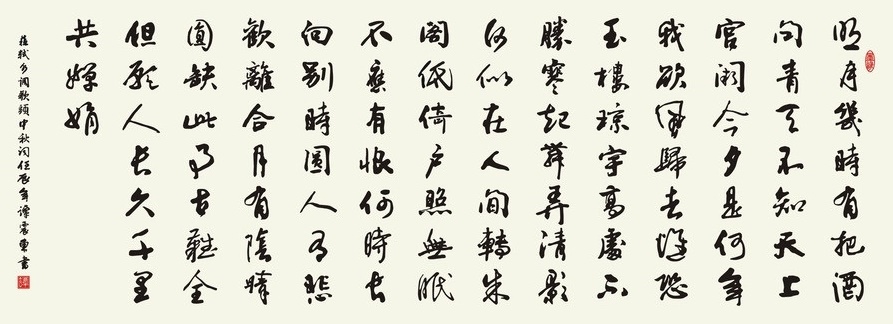 明月幾時有把酒
問青天不知天上
宮闕今夕是何年
我欲風歸去恐
玉樓瓊宇高處不
勝寒起舞弄清影
何似在人間轉朱
閣低倚戶照無眠
不應有恨何時長
向別時圓人有悲
歡離合月有陰晴
圓缺此事古難全
但願人長久千里
共嬋娟
蘇軾水調歌頭中秋詞壬辰年譚震東書